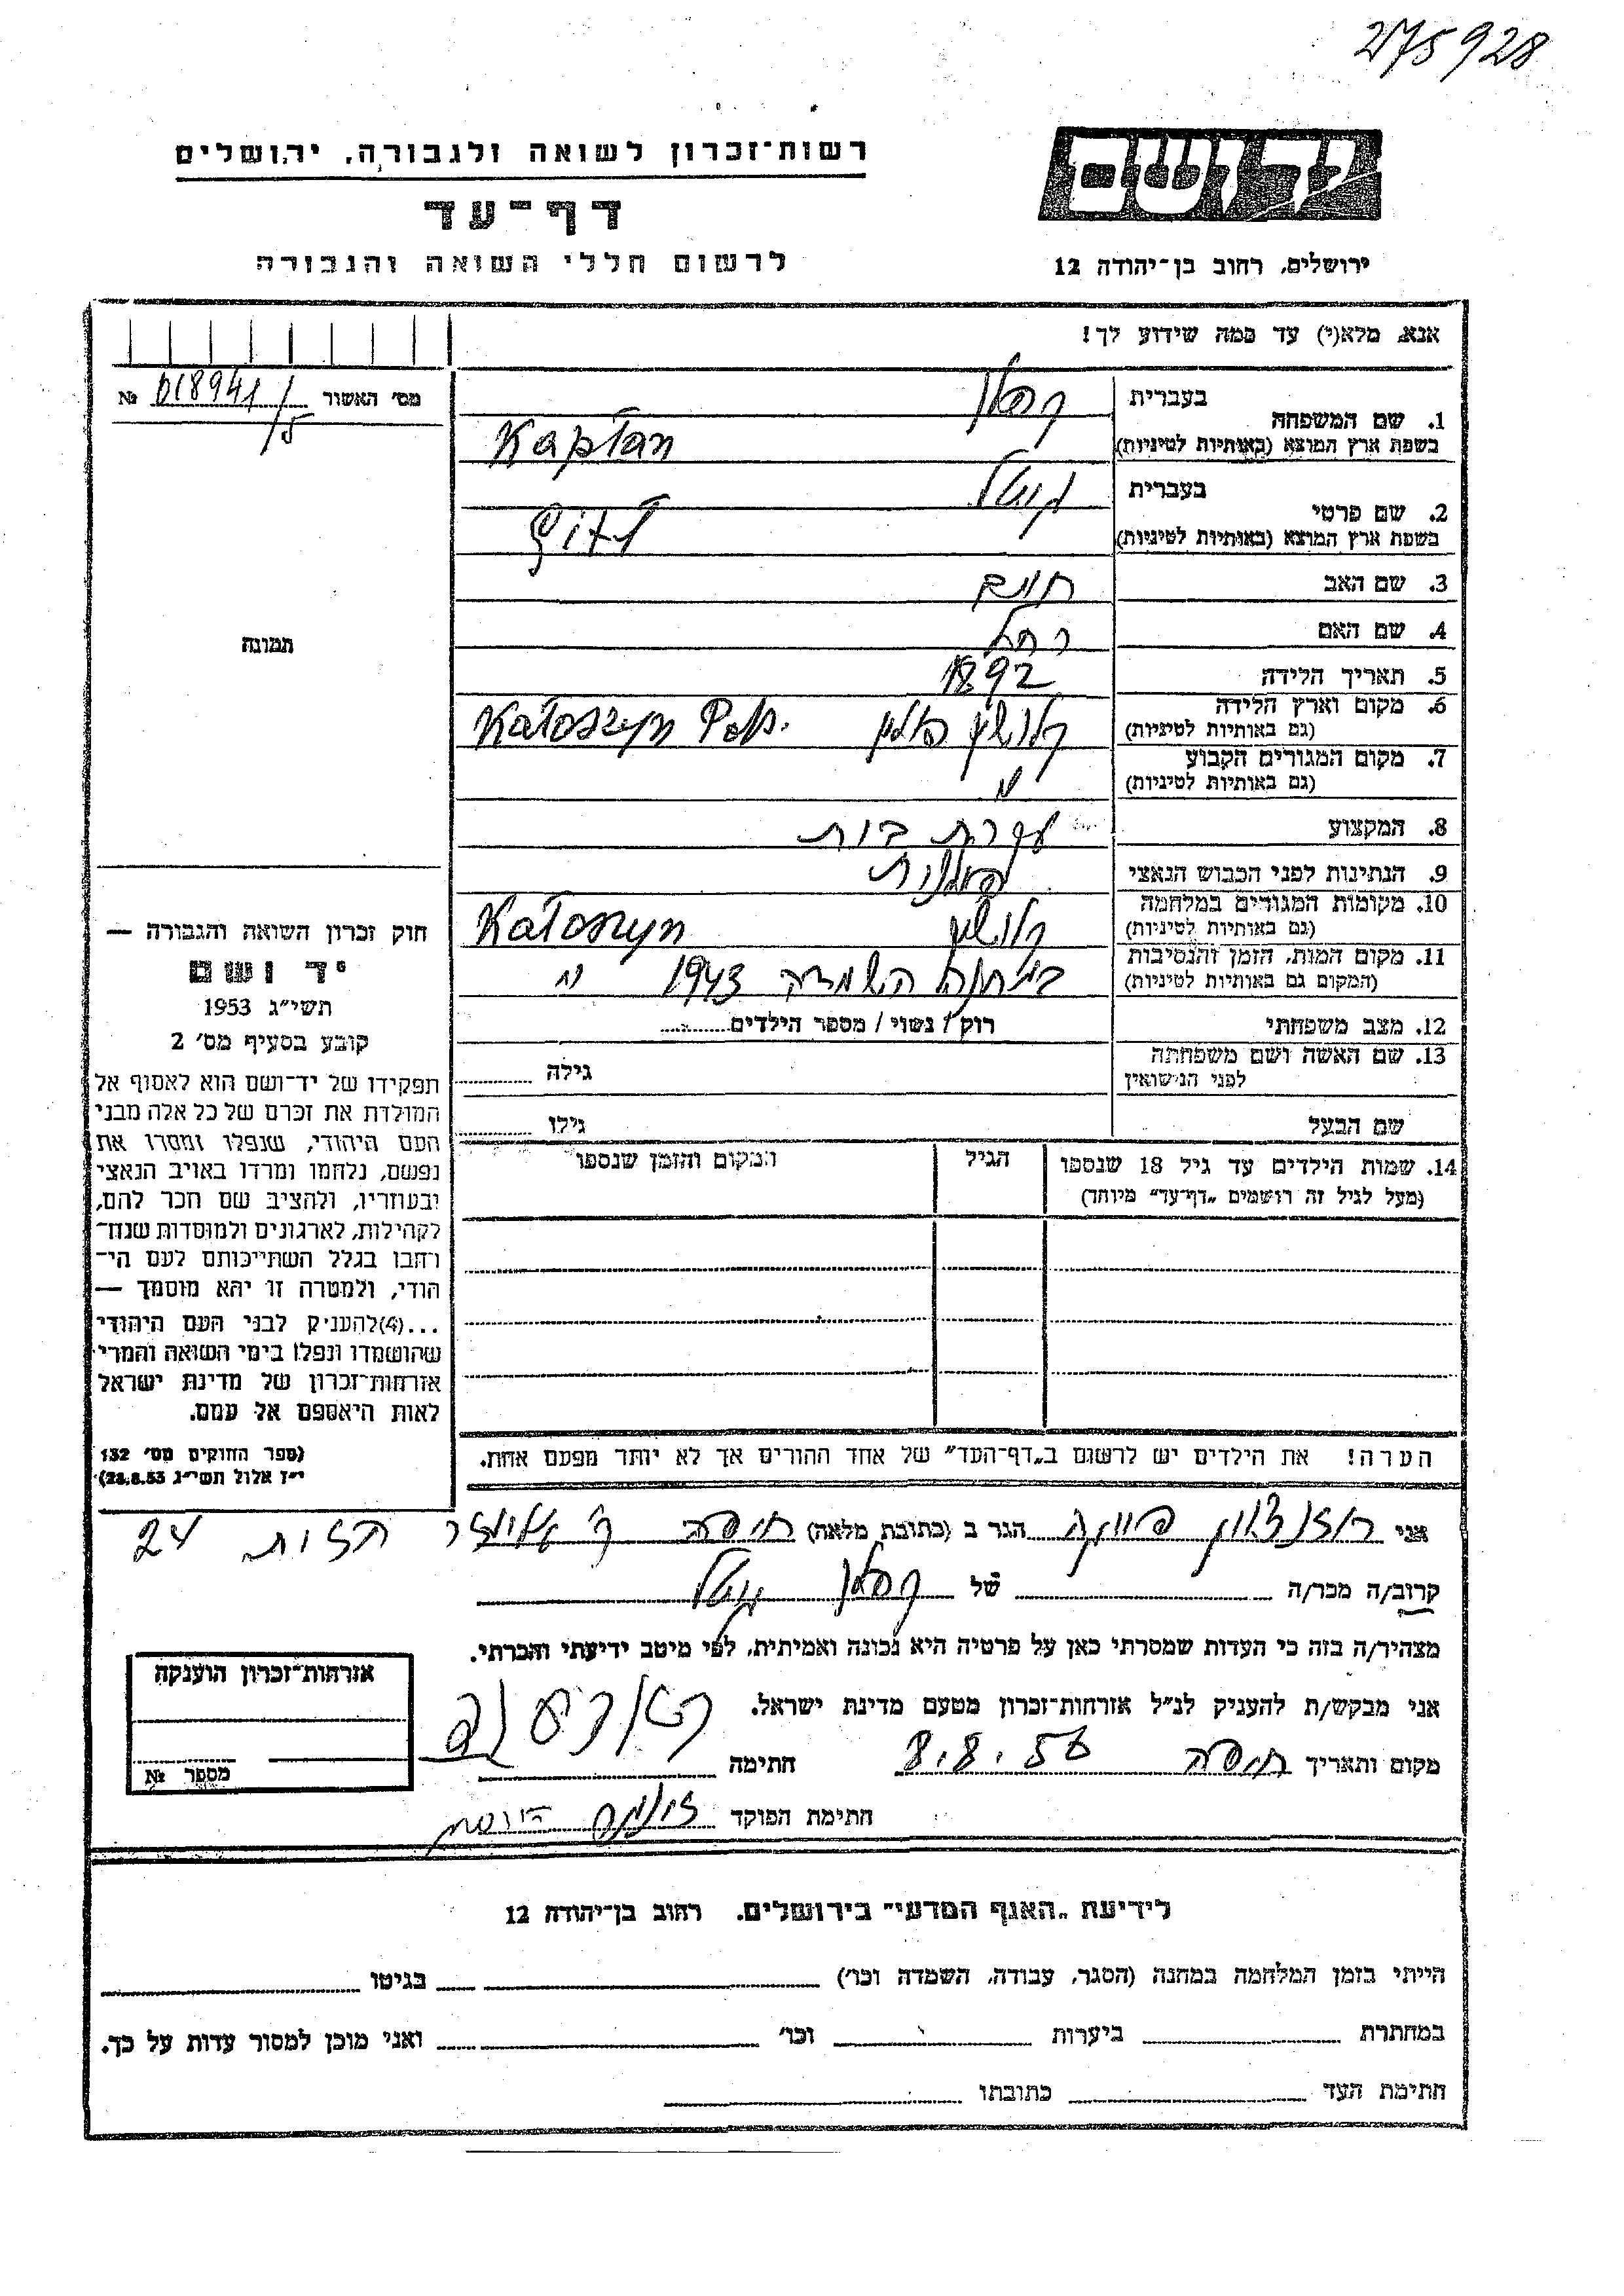 275928
רשות־זכרון לשואה ולגבורה, ירושלים
יד ושם
דף־עד
לרשום חללי השואה והגבורה
ירושלים, רחוב בן־יהודה 12
אנא, מלא(י) עד כמה שידוע לך!
מס׳ האשור 018941/ №
/5
1. שם המשפחה
בעברית קפלן
בשפת ארץ המוצא (באותיות לטיניות) Kapłan
2. שם פרטי
בעברית גיטל
בשפת ארץ המוצא (באותיות לטיניות) Gitł
3. שם האב חיים
4. שם האם רחל
5. תאריך הלידה 1892
6. מקום וארץ הלידה קלושין פולין Kałoszyn Pol.
(גם באותיות לטיניות)
7. מקום המגורים הקבוע
(גם באותיות לטיניות) "
8. המקצוע עקרת בית
9. הנתינות לפני הכבוש הנאצי פולנית
10. מקומות המגורים במלחמה קלושין Kałoszyn
(גם באותיות לטיניות)
11. מקום המות, הזמן והנסיבות במחנה השמדה 1943
(המקום גם באותיות לטיניות)
12. מצב משפחתי רוק / נשוי / מספר הילדים
13. שם האשה ושם משפחתה
לפני הנישואין גילה
שם הבעל גילו
14. שמות הילדים עד גיל 18 שנספו הגיל המקום והזמן שנספו
(מעל לגיל זה רושמים „דף־עד" מיוחד)
תמונה
חוק זכרון השואה והגבורה —
יד ושם
תשי״ג 1953
קובע בסעיף מס׳ 2
תפקידו של יד־ושם הוא לאסוף אל
המולדת את זכרם של כל אלה מבני
העם היהודי, שנפלו ומסרו את
נפשם, נלחמו ומרדו באויב הנאצי
ובעוזריו, ולהציב שם וזכר להם,
לקהילות, לארגונים ולמוסדות שנח־
רבו בגלל השתייכותם לעם הי־
הודי, ולמטרה זו יהא מוסמך —
...(4)להעניק לבני העם היהודי
שהושמדו ונפלו בימי השואה והמרי
אזרחות־זכרון של מדינת ישראל
לאות היאספם אל עמם.
(ספר החוקים מס׳ 132
י״ז אלול תשי״ג 28.8.53)
הערה! את הילדים יש לרשום ב„דף־העד" של אחד ההורים אך לא יותר מפעם אחת.
אני הגר ב (כתובת מלאה) חיפה 24
קרוב/ה מכר/ה של קפלן גיטל
מצהיר/ה בזה כי העדות שמסרתי כאן על פרטיה היא נכונה ואמיתית, לפי מיטב ידיעתי והכרתי.
אני מבקש/ת להעניק לנ״ל אזרחות־זכרון מטעם מדינת ישראל.
מקום ותאריך חיפה 8.8.56 חתימה
חתימת הפוקד
אזרחות־זכרון הוענקה
מספר №
לידיעת „האגף המדעי" בירושלים. רחוב בן־יהודה 12
הייתי בזמן המלחמה במחנה (הסגר, עבודה, השמדה וכו׳) בגיטו
במחתרת ביערות וכו׳ ואני מוכן למסור עדות על כך.
חתימת העד כתובתו